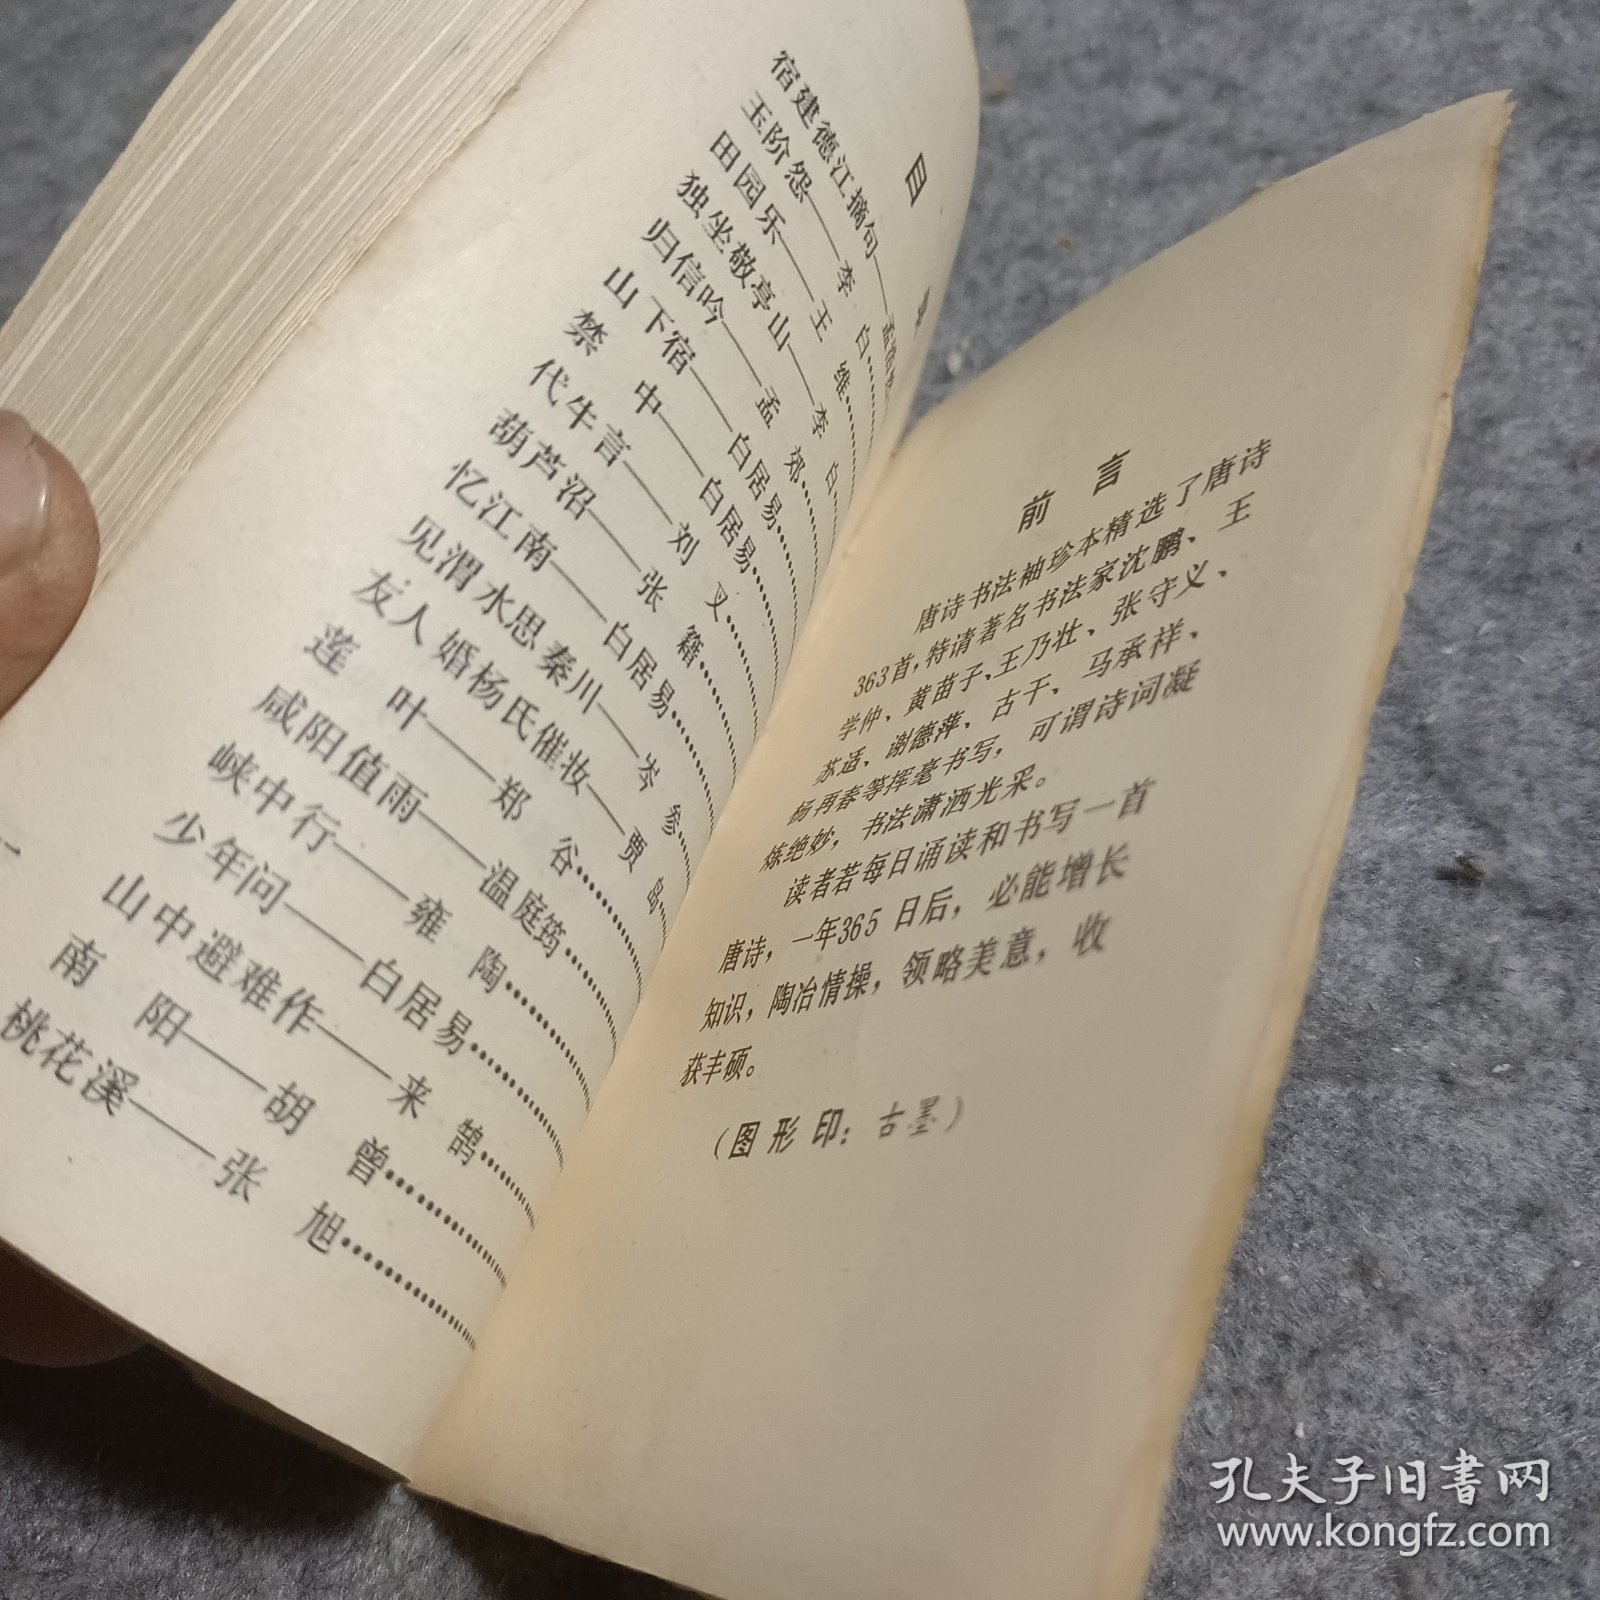 目 录
宿建德江摘句——孟浩然
玉阶怨——李 白
田园乐——王 维
独坐敬亭山——李 白
归信吟——孟 郊
山下宿——白居易
禁 中——白居易
代牛言——刘 叉
葫芦沼——张 籍
忆江南——白居易
见渭水思秦川——岑 参
友人婚杨氏催妆——贾 岛
莲 叶——郑 谷
咸阳值雨——温庭筠
峡中行——雍 陶
少年问——白居易
山中避难作——来 鹄
南 阳——胡 曾
桃花溪——张 旭
前 言
唐诗书法袖珍本精选了唐诗
363首，特请著名书法家沈鹏、王
学仲、黄苗子、王乃壮、张守义、
苏适、谢德萍、古干、马承祥、
杨再春等挥毫书写，可谓诗词凝
炼绝妙，书法潇洒光采。
读者若每日诵读和书写一首
唐诗，一年365日后，必能增长
知识，陶冶情操，领略美意，收
获丰硕。
（图形印：古墨）
孔夫子旧书网
www.kongfz.com